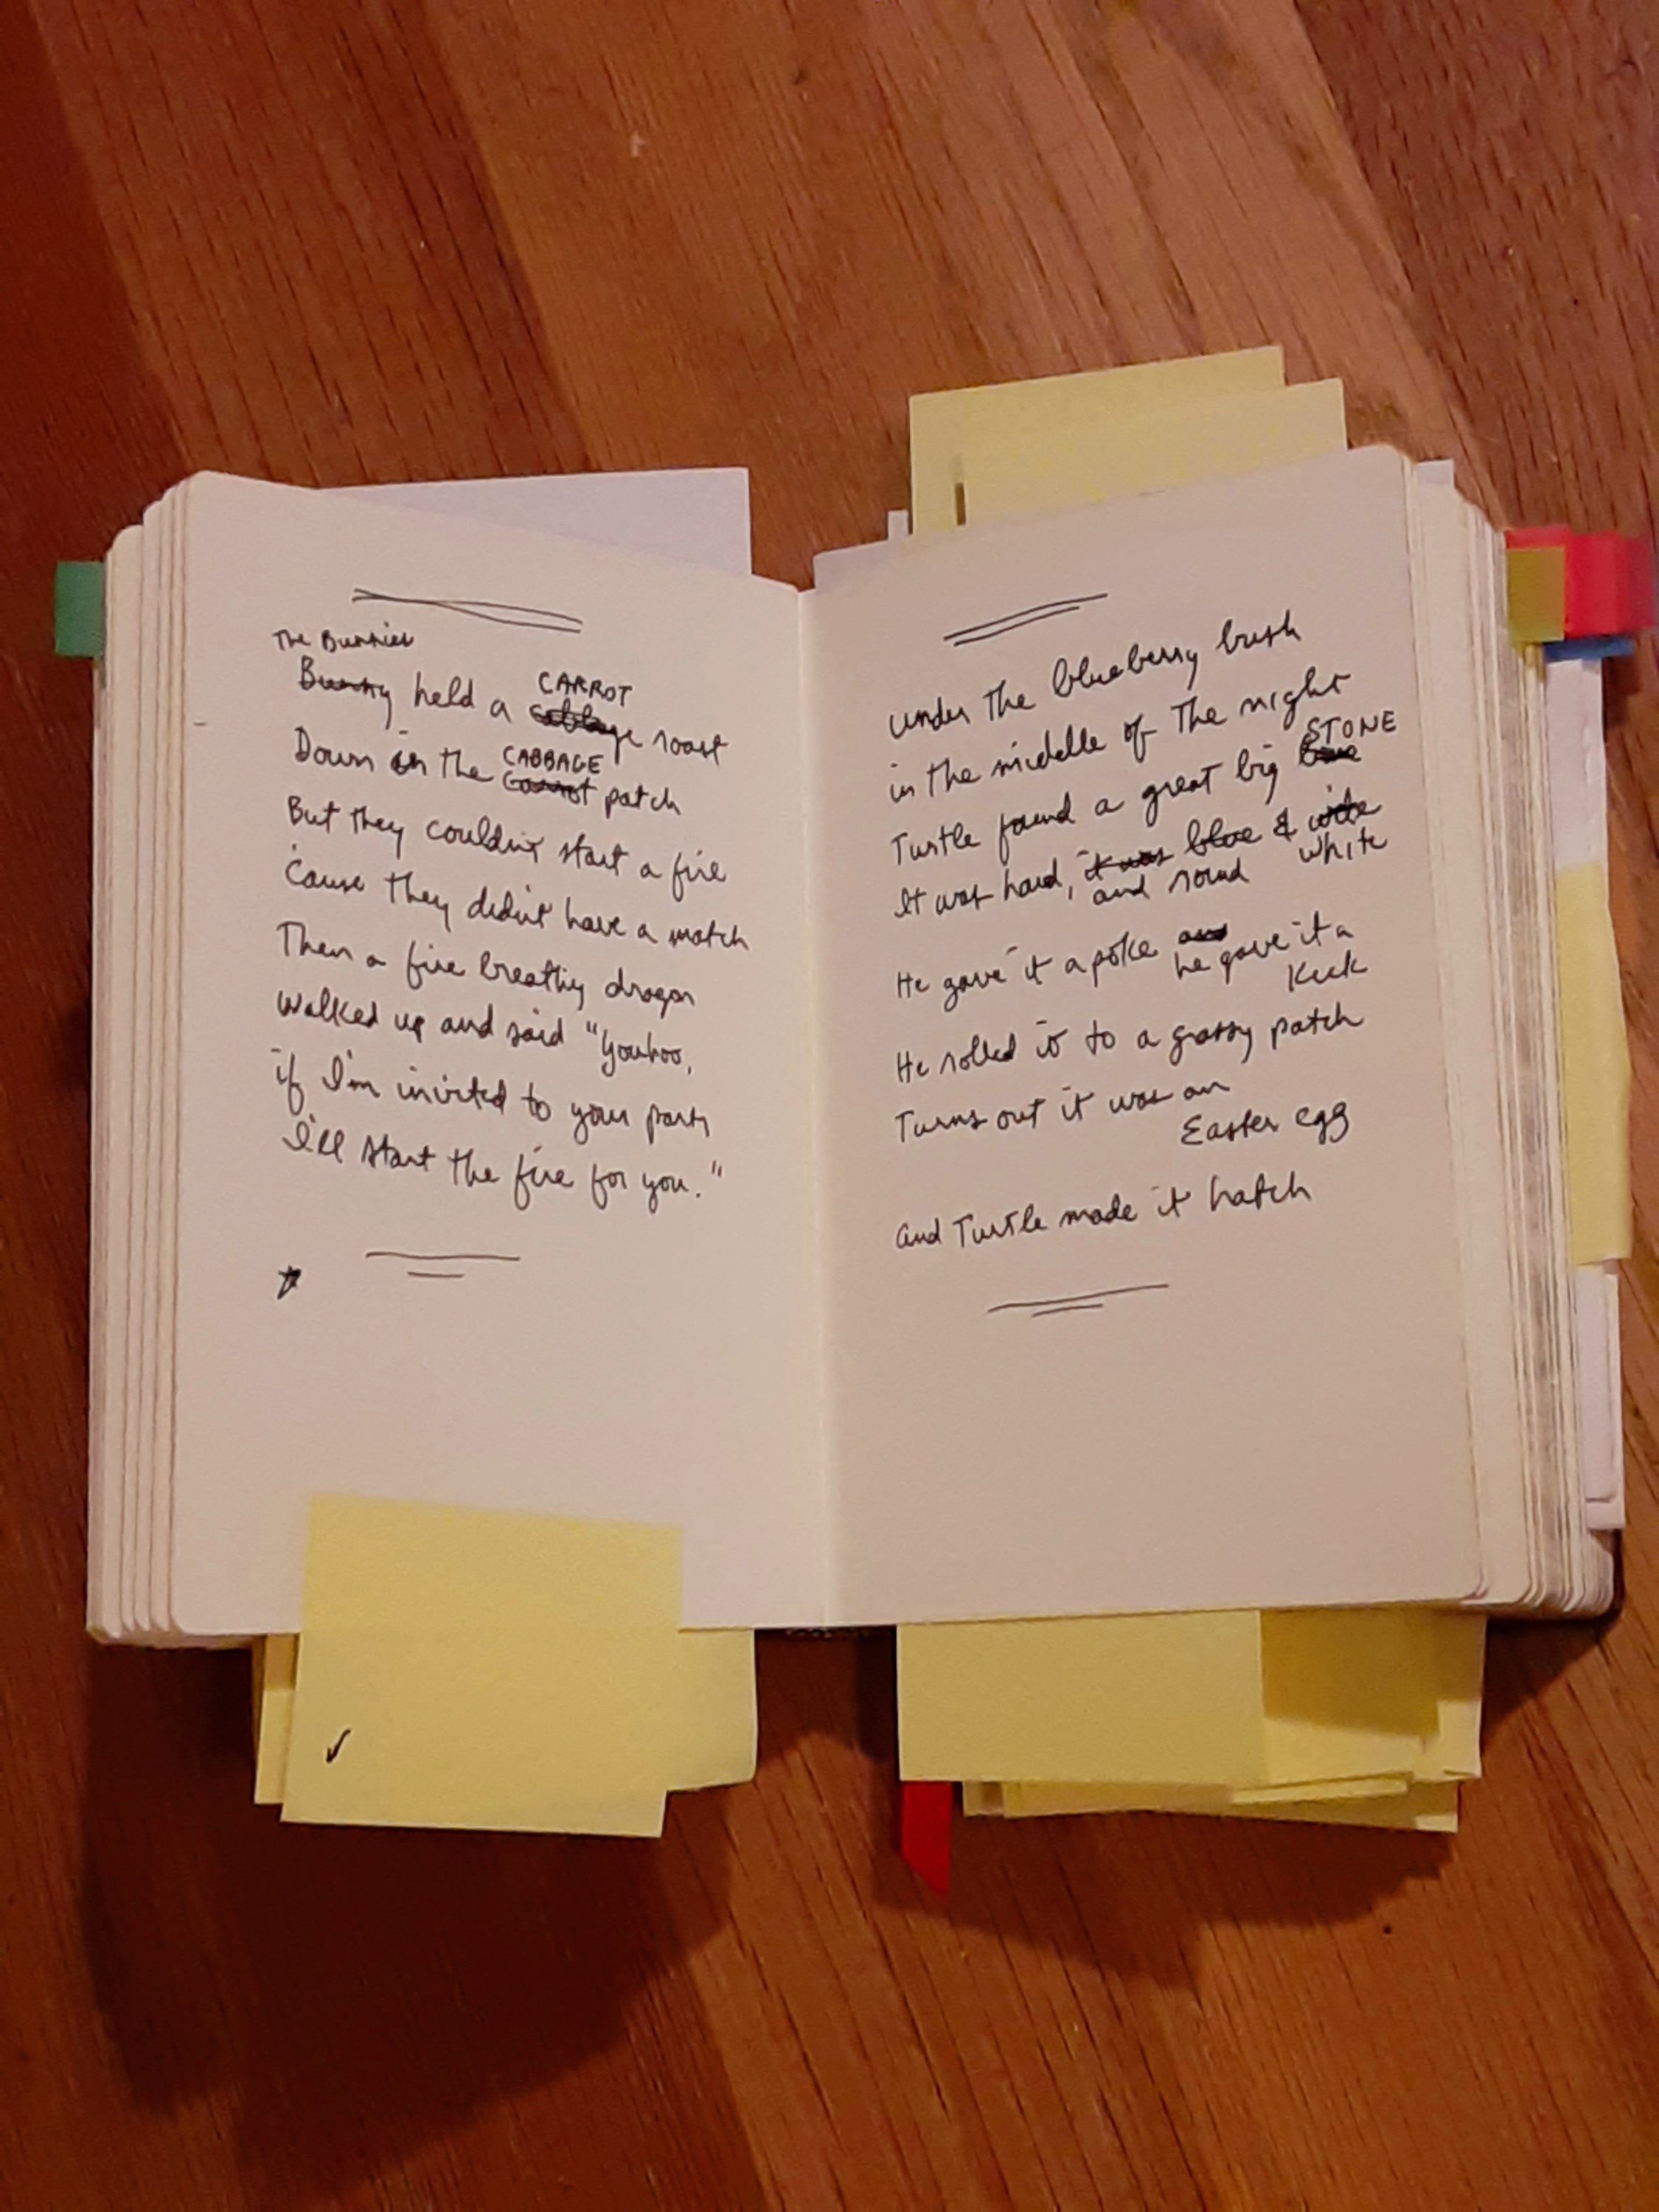 The Bunnies
Bunny held a CARROT
cabbage roast
Down in the CABBAGE
Carrot patch
But they couldn't start a fire
'Cause they didn't have a match
Then a fire breathing dragon
Walked up and said "Youhoo,
if I'm invited to your party
I'll start the fire for you."
under the blueberry bush
in the middle of the night
STONE
Turtle found a great big
It was hard, it was blue & wide
and round white
He gave it a poke and he gave it a
Kick
He rolled it to a grassy patch
Turns out it was an
Easter egg
and Turtle made it hatch